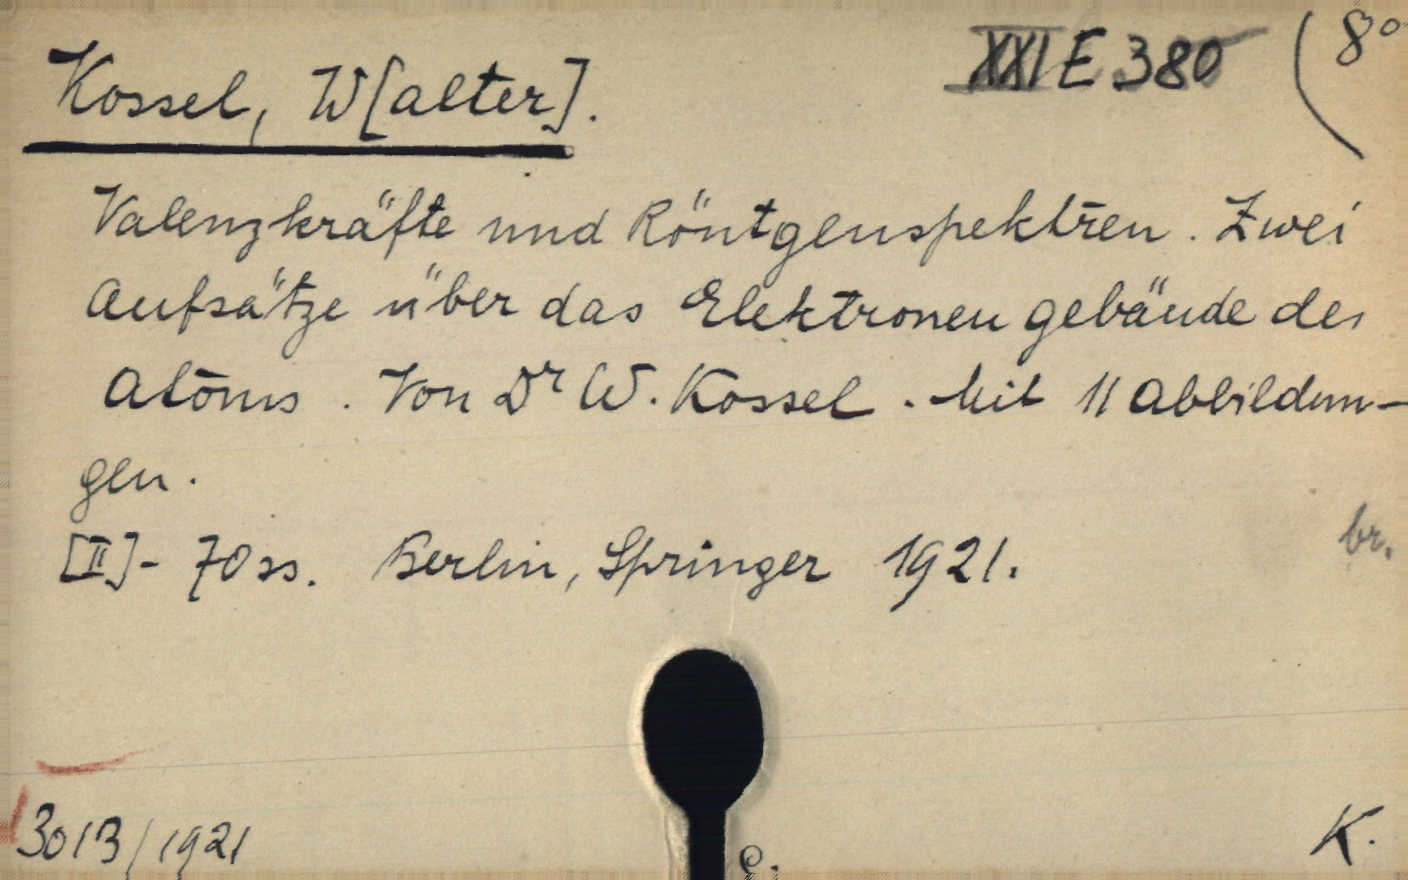 Kossel, W[alter].
XXI E 380
8°
Valenzkräfte und Röntgenspektren. Zwei
Aufsätze über das Elektronengebäude des
Atoms. Von Dr W. Kossel. Mit 11 Abbildun-
gen.
[II]- 70 ss. Berlin, Springer 1921.
br.
3013/1921
e.
K.